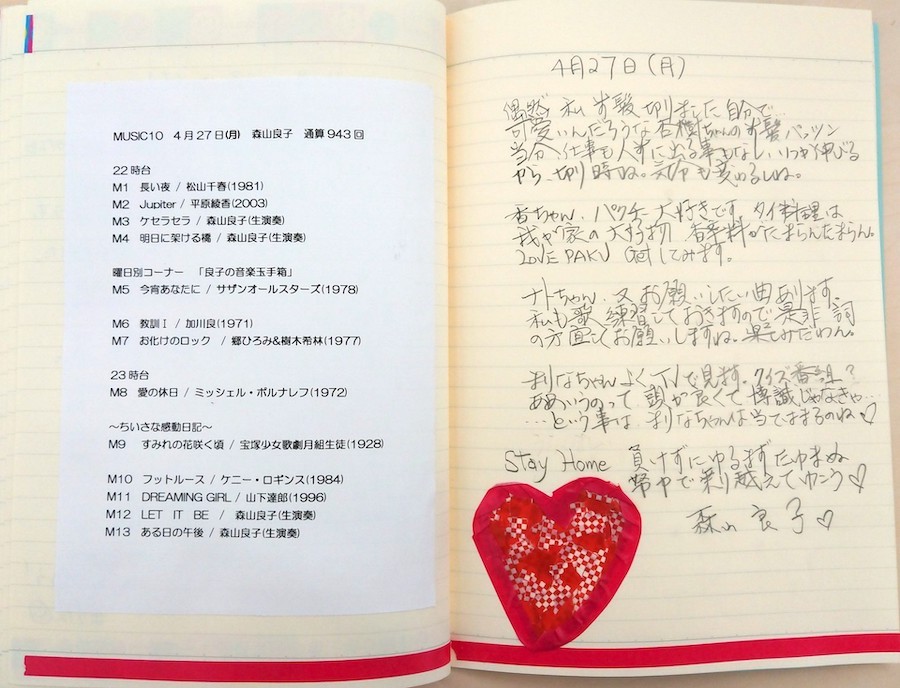 MUSIC10 4月27日(月) 森山良子 通算943回
22時台
M1 長い夜 / 松山千春(1981)
M2 Jupiter / 平原綾香(2003)
M3 ケセラセラ / 森山良子(生演奏)
M4 明日に架ける橋 / 森山良子(生演奏)
曜日別コーナー 「良子の音楽玉手箱」
M5 今宵あなたに / サザンオールスターズ(1978)
M6 教訓Ⅰ / 加川良(1971)
M7 お化けのロック / 郷ひろみ&樹木希林(1977)
23時台
M8 愛の休日 / ミッシェル・ポルナレフ(1972)
～ちいさな感動日記～
M9 すみれの花咲く頃 / 宝塚少女歌劇月組生徒(1928)
M10 フットルース / ケニー・ロギンス(1984)
M11 DREAMING GIRL / 山下達郎(1996)
M12 LET IT BE / 森山良子(生演奏)
M13 ある日の午後 / 森山良子(生演奏)
4月27日(月)
偶然 私 お髪 切りました 自分で
可愛いんだろうな ちゃんのお髪 パッツン
当分、仕事も人前に出る事もなし、いつか伸びる
から、切り時ね。気分も変わるしね。
香ちゃん、パクチー大好きです。タイ料理は
我が家の大好物 香辛料がたまらんたまらん。
LOVE PAKU してみます。
ナトちゃん、又お願いしたい曲あります。
私も歌練習しておきますので是非 詞
の方面でお願いしますね。楽しみだわん。
まりなちゃん よくTVで見ます。クイズ番組?
ああいうのって 頭が良くて 博識じゃなきゃ…
…という事は まりなちゃんは当てはまるのね♡
Stay Home 負けずに ゆるまず たゆまぬ
で 乗り越えてゆこう♡
森山良子♡